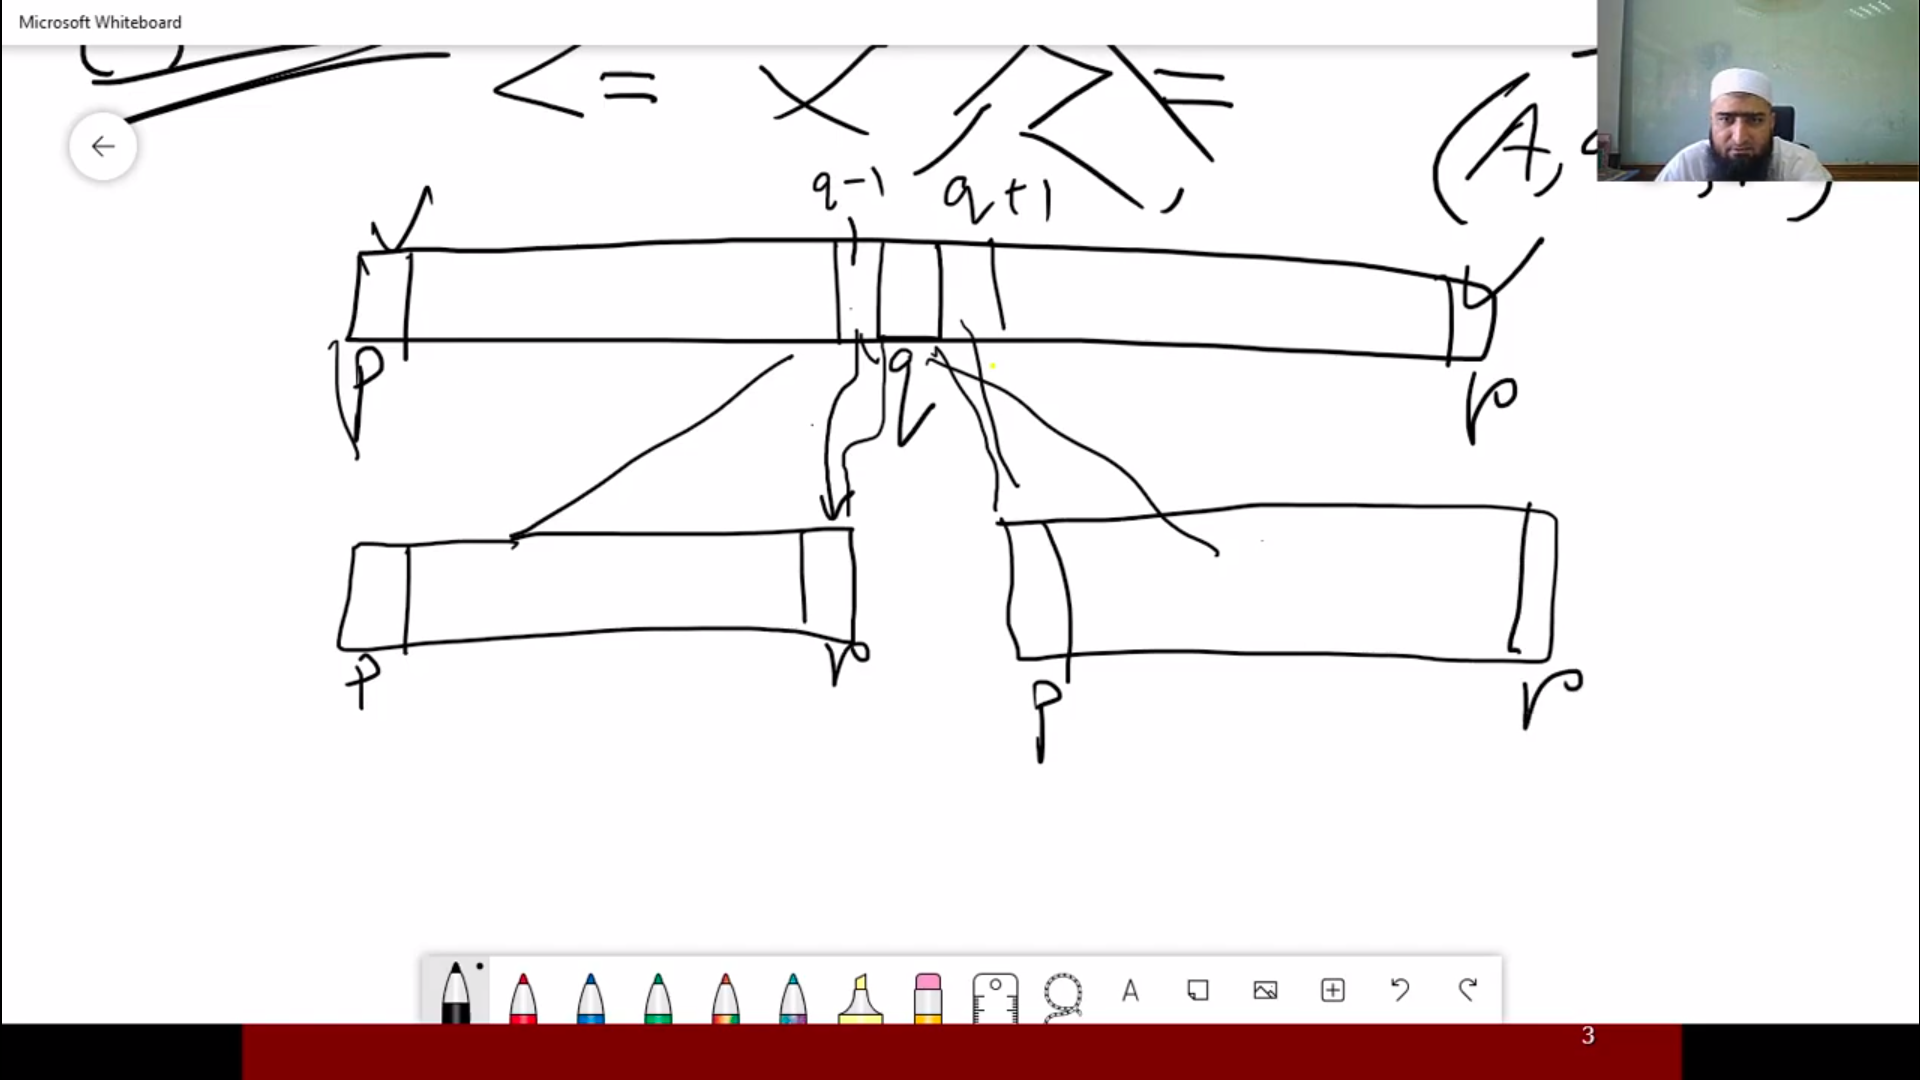 Microsoft Whiteboard
<= >=
(A,
q-1 q+1 ,
p q r
p r p r
A
3